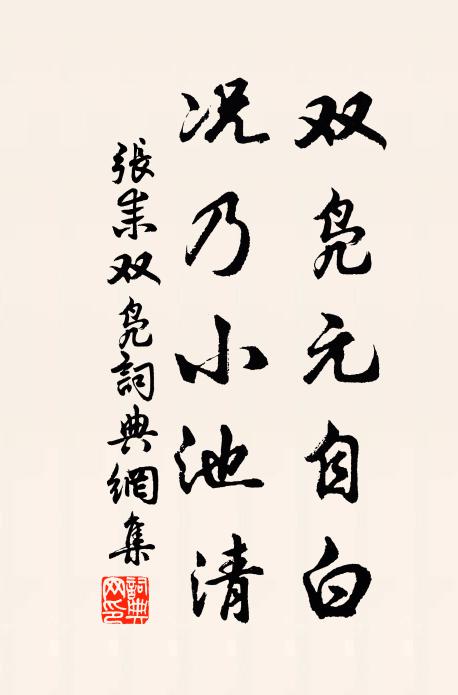 双凫元自白
况乃小池清
張耒双凫詞典網集
詞典網印